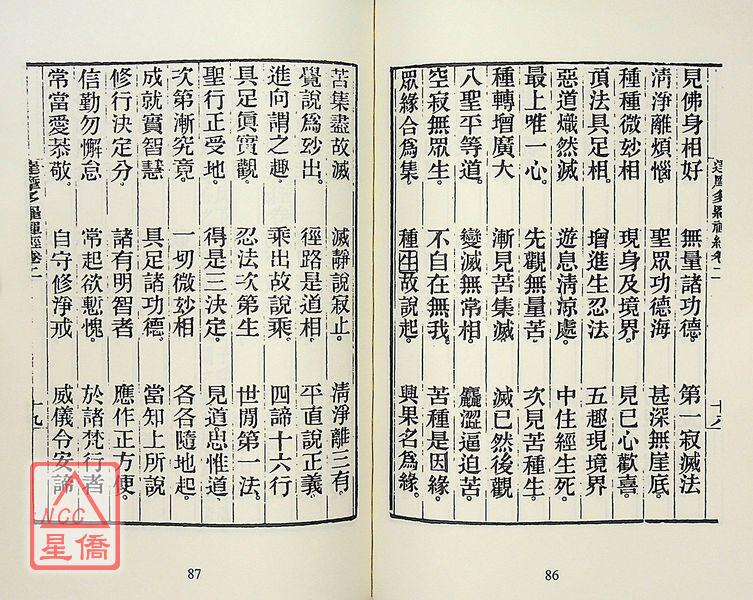 見佛身相好　無量諸功德。　第一寂滅法
清淨離煩惱。　聖眾功德海　甚深無崖底。
種種微妙相　現身及境界。　見已心歡喜。
頂法具足相。　增進生忍法　五趣現境界
惡道熾然滅　遊息清涼處。　中住經生死。
最上唯一心。　先觀無量苦。　次見苦種生。
種轉增廣大　漸見苦集滅　滅已然後觀
八聖平等道。　變滅無常相。　麤澀逼迫苦。
空寂無眾生。　不自在無我。　苦種是因緣。
眾緣合為集。　種生故說起。　興果名為緣。
達摩多羅禪經卷二　十八
86
苦集盡故滅　滅靜說寂止。　清淨離三有。
覺說為妙出。　徑路是道相。　平直說正義。
進向謂之趣。　乘出故說乘。　四諦十六行
具足真實觀。　忍法次第生　世間第一法。
聖行正受地。　得是三決定。　見道思惟道。
次第漸究竟。　一切微妙相　各各隨地起。
成就實智慧　具足諸功德。　當知上所說
修行決定分　諸有明智者　應作正方便。
信勤勿懈怠　常起欲慙愧。　於諸梵行者
常當愛恭敬。　自守修淨戒　威儀令安諦
達摩多羅禪經卷二　十九
87
NCC
星僑